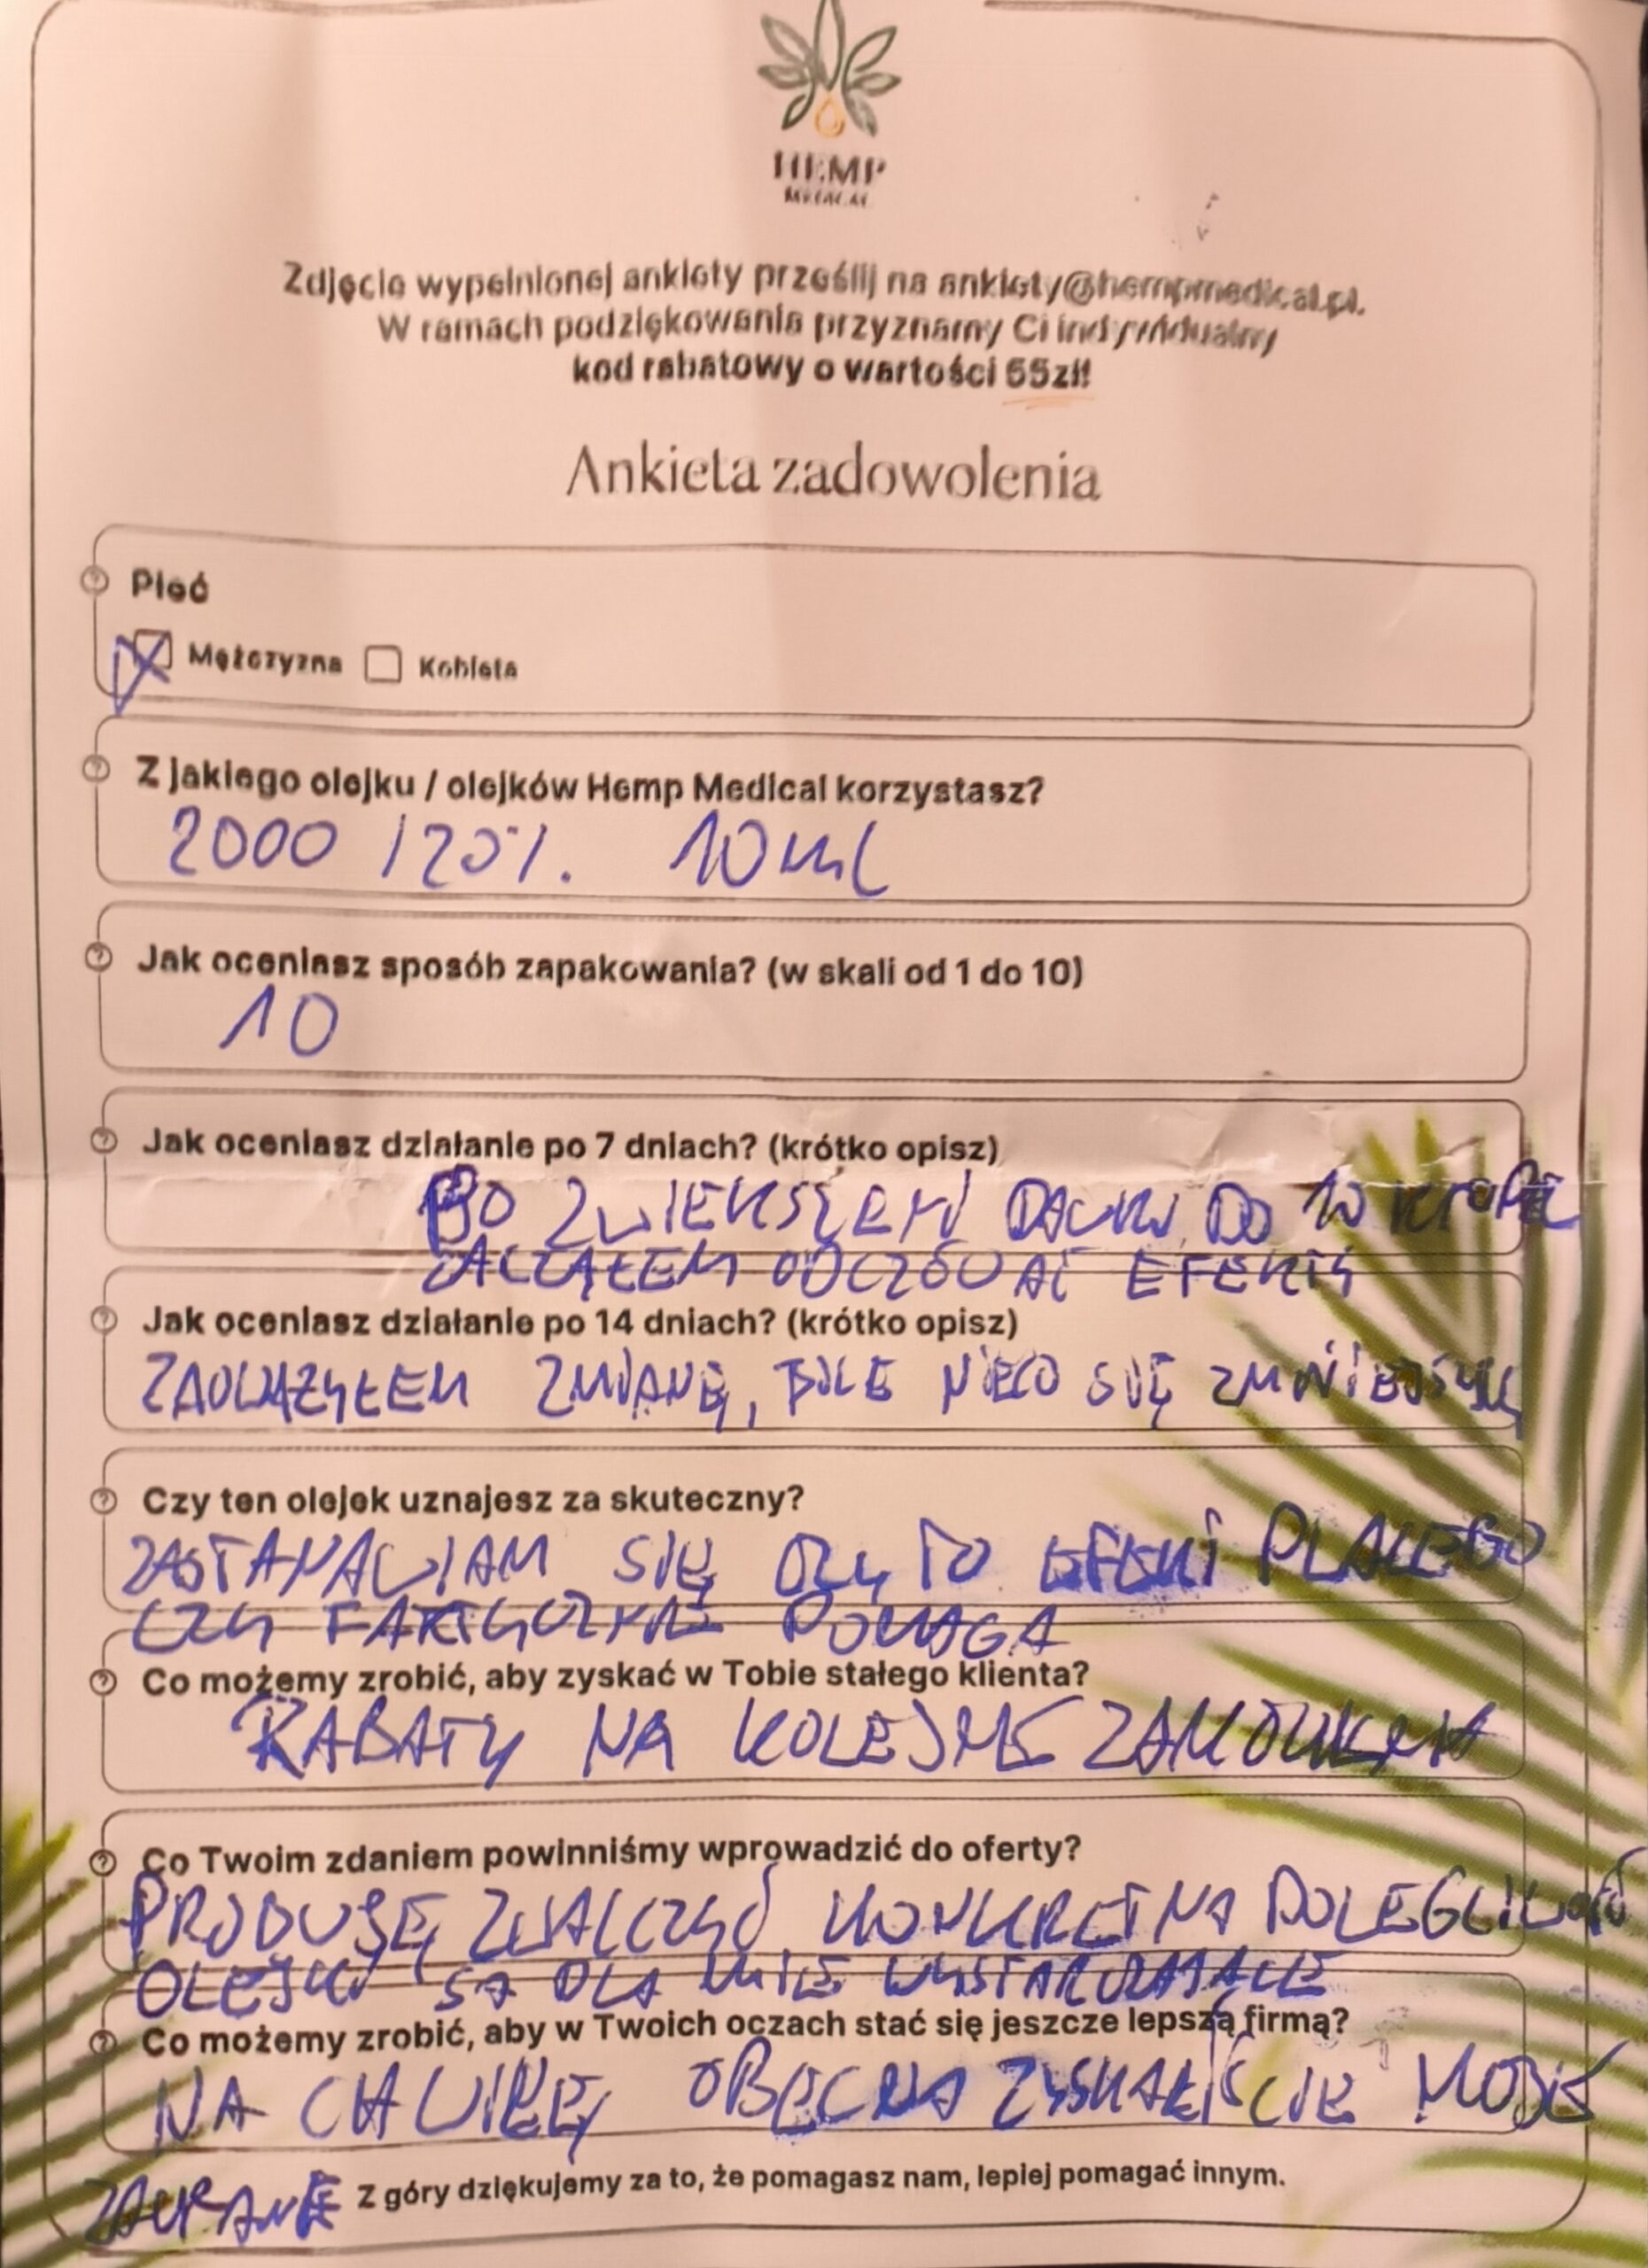 HEMP
MEDICAL
Zdjęcie wypełnionej ankiety prześlij na ankiety@hempmedical.pl.
W ramach podziękowania przyznamy Ci indywidualny
kod rabatowy o wartości 55zł!
Ankieta zadowolenia
Płeć
Mężczyzna Kobieta
Z jakiego olejku / olejków Hemp Medical korzystasz?
2000 /20%. 10ml
Jak oceniasz sposób zapakowania? (w skali od 1 do 10)
10
Jak oceniasz działanie po 7 dniach? (krótko opisz)
PO DO 10 KROPEL
ZACZĄŁEM ODCZÓWAĆ EFEKTY
Jak oceniasz działanie po 14 dniach? (krótko opisz)
ZAOWAŻYŁEM ZMIANĘ, BÓLE NIECO SIĘ
Czy ten olejek uznajesz za skuteczny?
ZASTANAWIAM SIĘ CZY TO EFEKT PLACEGO
CZY FAKTYCZNIE POMAGA
Co możemy zrobić, aby zyskać w Tobie stałego klienta?
RABATY NA KOLEJNE ZAMÓWIENIA
Co Twoim zdaniem powinniśmy wprowadzić do oferty?
KONKRETNA DOLEGLIWOŚĆ
OLEJKI SĄ DLA MNIE WYSTARCZAJĄCE
Co możemy zrobić, aby w Twoich oczach stać się jeszcze lepszą firmą?
NA CHWILĘ OBECNA ZYSKALIŚCIE MOJE
ZAUFANIE Z góry dziękujemy za to, że pomagasz nam, lepiej pomagać innym.